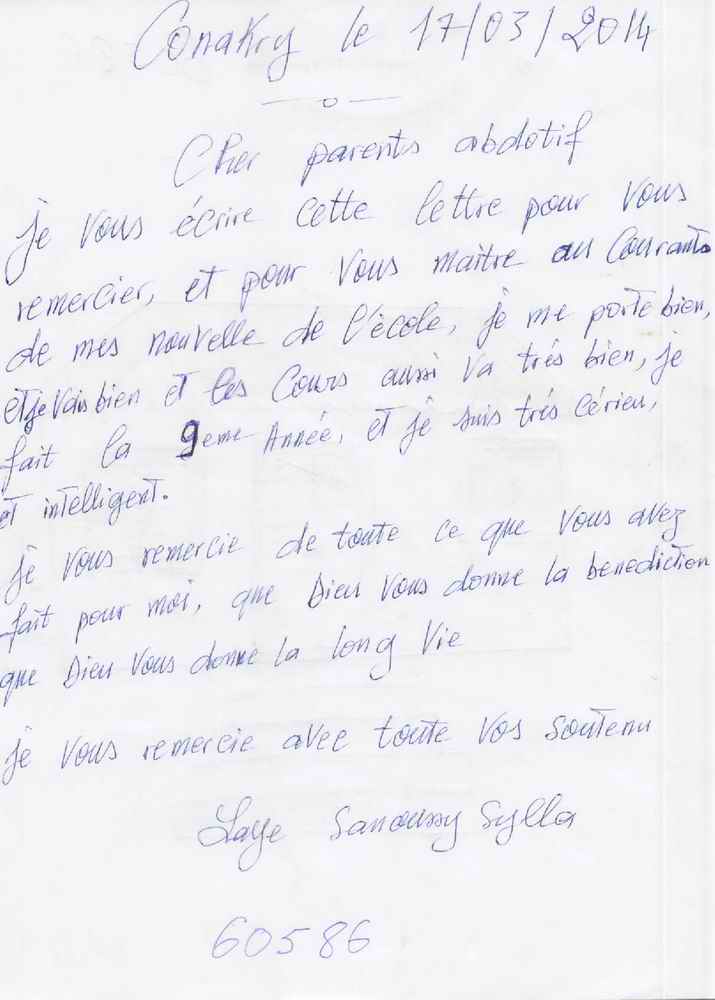 Conakry le 17/03/2014
Cher parents abdotif
je vous écrire cette lettre pour vous
remercier, et pour vous maitre au Courants
de mes nouvelle de l'école, je me porte bien,
et je vais bien et les Cours aussi va trés bien, je
fait la 9eme Année, et je suis trés Cérieu,
et intelligent.
je vous remercie de toute ce que vous avez
fait pour moi, que Dieu vous donne la benediction
que Dieu vous donne la long vie
je vous remercie avec toute vos soutenu
Laye Sanoussy Sylla
60586